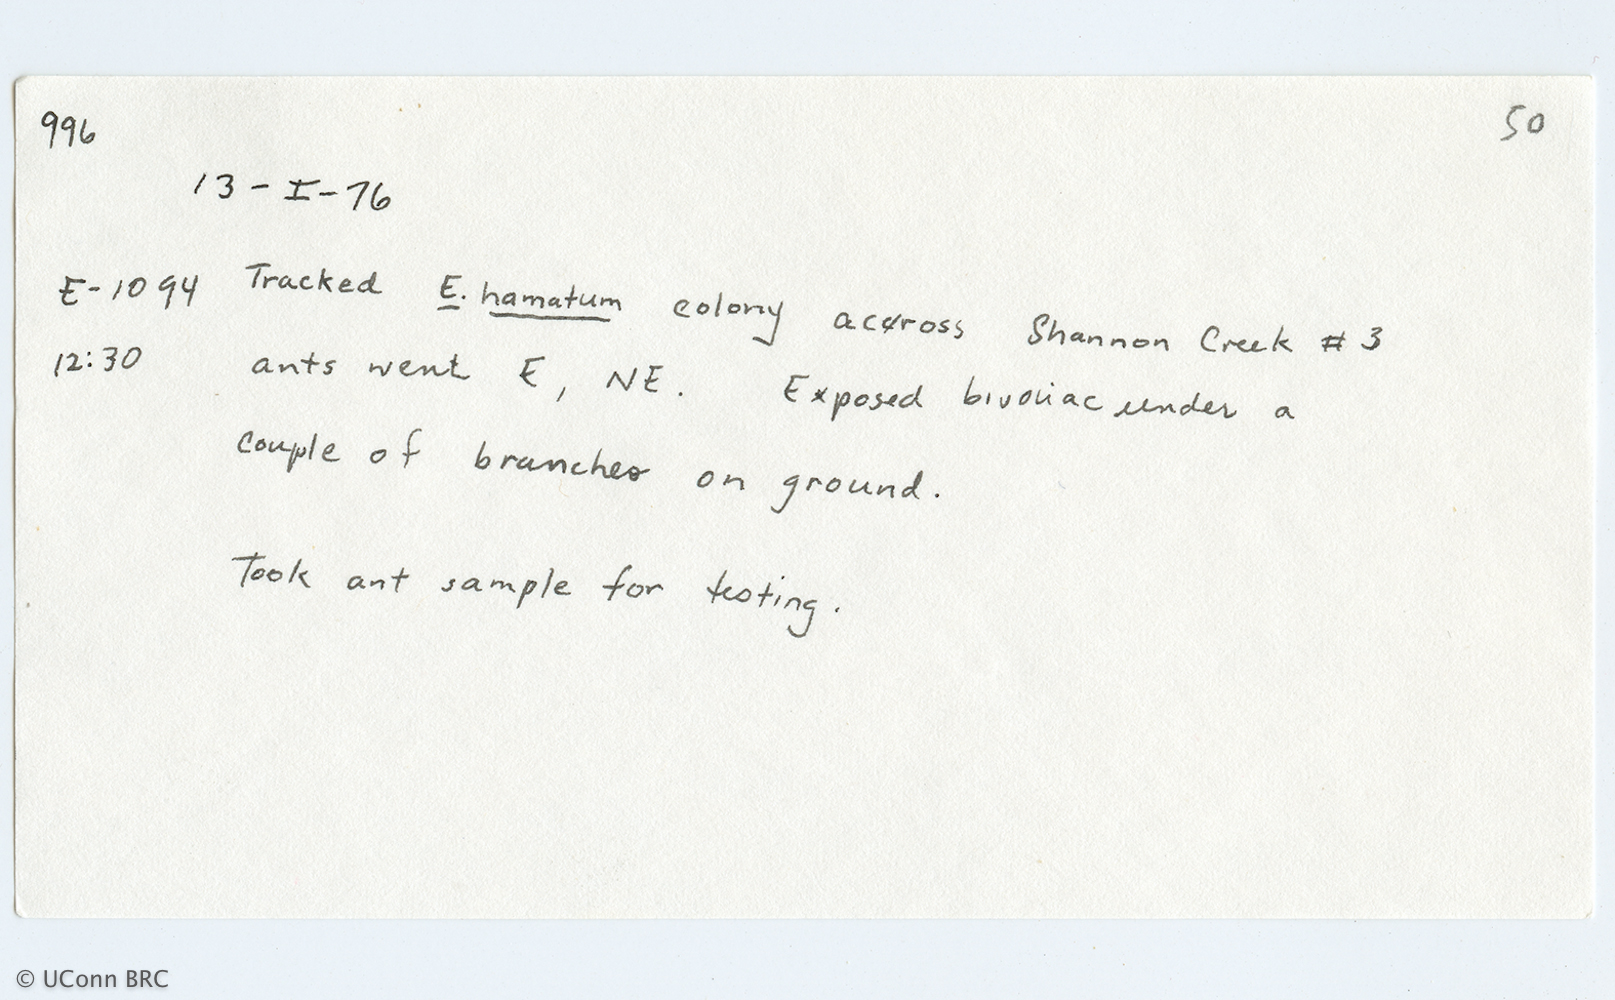 996
50
13-I-76
E-1094 Tracked E. hamatum colony accross Shannon Creek # 3
12:30 ants went E, NE. Exposed bivouac under a
couple of branches on ground.
Took ant sample for testing.
© UConn BRC